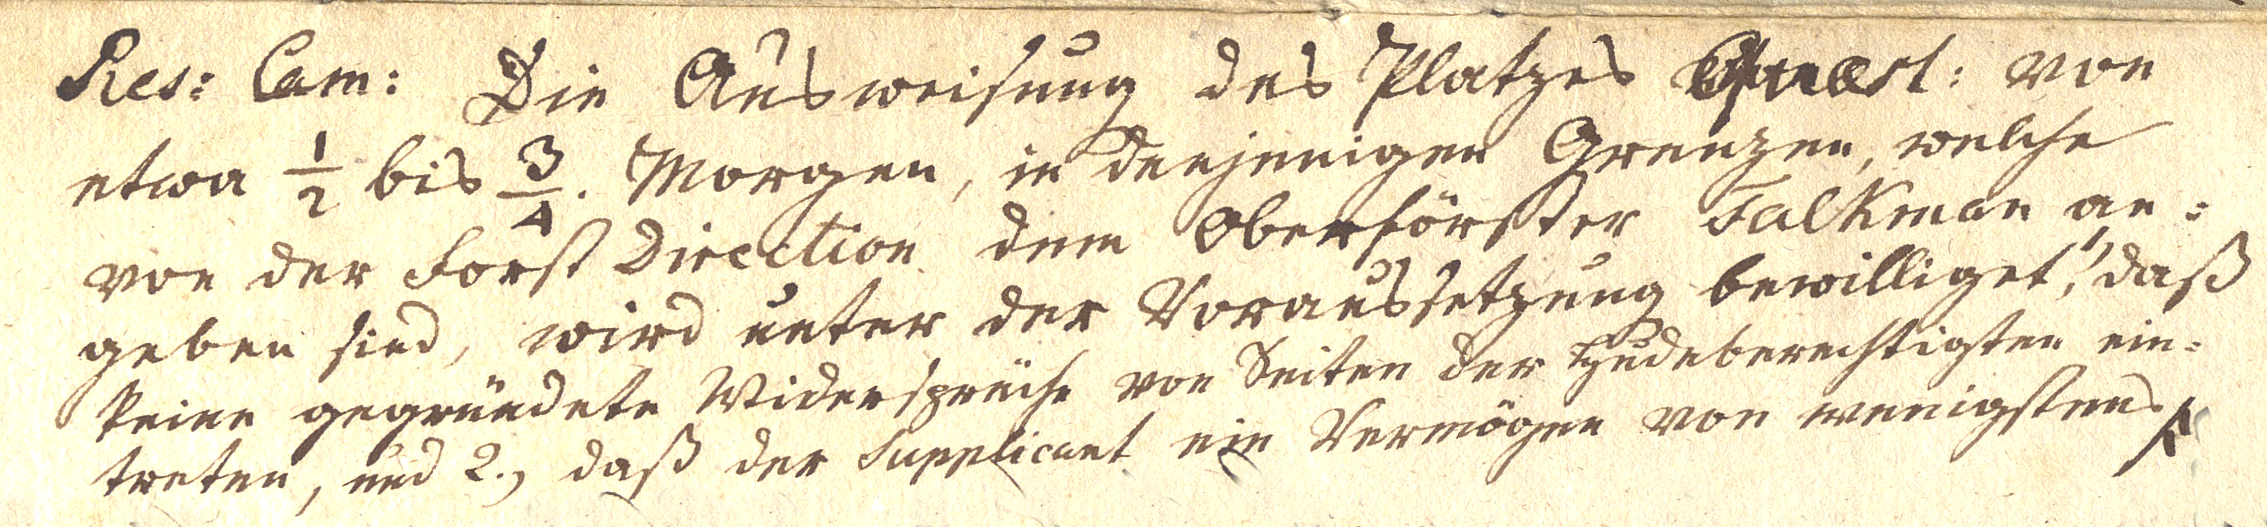 Res: Cam: Die Ausweisung des Platzes Quaest: von
etwa 1/2 bis 3/4. Morgen, in denjenigen Grenzen, welche
von der Forst Direction dem Oberförster Falkman an-
geben sind, wird unter der Voraussetzung bewilliget, 1, daß
keine gegründete Widersprüche von Seiten der Hudeberechtigten ein-
treten, und 2., daß der Supplicant ein Vermögen von wenigstens